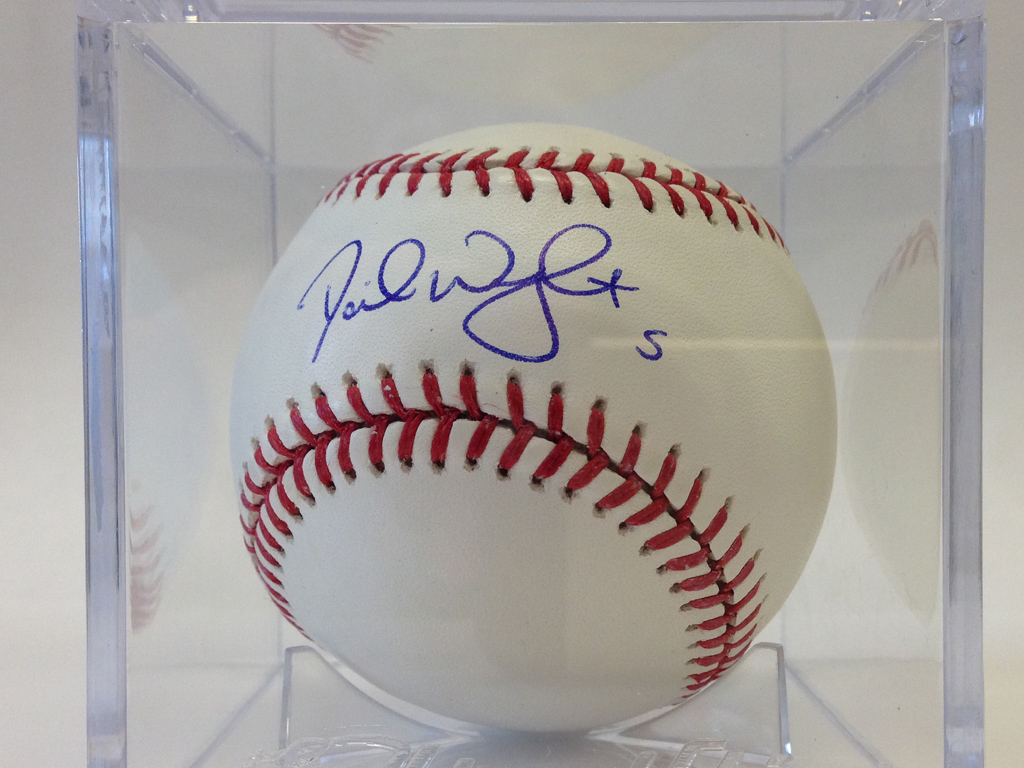 David Wright
5